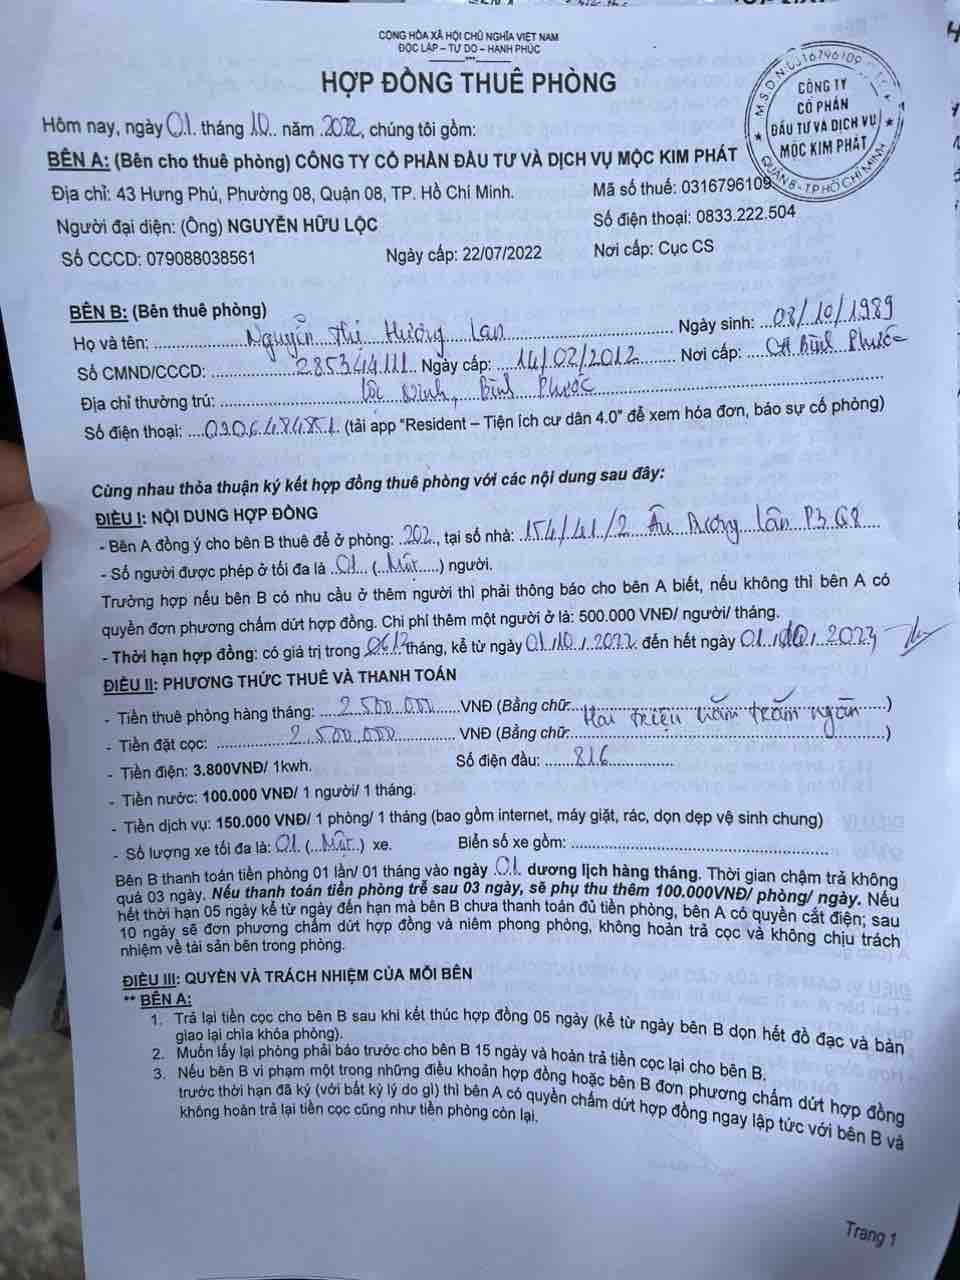 CỘNG HÒA XÃ HỘI CHỦ NGHĨA VIỆT NAM
ĐỘC LẬP – TỰ DO – HẠNH PHÚC
***
HỢP ĐỒNG THUÊ PHÒNG
M.S.D.N: 0316796109
CÔNG TY
CỔ PHẦN
ĐẦU TƯ VÀ DỊCH VỤ
MỘC KIM PHÁT
QUẬN 8 - TP HỒ CHÍ MINH
Hôm nay, ngày 01 tháng 10 năm 2022, chúng tôi gồm:
BÊN A: (Bên cho thuê phòng) CÔNG TY CỔ PHẦN ĐẦU TƯ VÀ DỊCH VỤ MỘC KIM PHÁT
Địa chỉ: 43 Hưng Phú, Phường 08, Quận 08, TP. Hồ Chí Minh. Mã số thuế: 0316796109
Người đại diện: (Ông) NGUYỄN HỮU LỘC Số điện thoại: 0833.222.504
Số CCCD: 079088038561 Ngày cấp: 22/07/2022 Nơi cấp: Cục CS
BÊN B: (Bên thuê phòng)
Họ và tên: Nguyễn Thị Hương Lan Ngày sinh: 08/10/1989
Số CMND/CCCD: 285344111 Ngày cấp: 14/02/2012 Nơi cấp: CA Bình Phước
Địa chỉ thường trú: Lộc Ninh, Bình Phước
Số điện thoại: (tải app "Resident – Tiện ích cư dân 4.0" để xem hóa đơn, báo sự cố phòng)
Cùng nhau thỏa thuận ký kết hợp đồng thuê phòng với các nội dung sau đây:
ĐIỀU I: NỘI DUNG HỢP ĐỒNG
- Bên A đồng ý cho bên B thuê để ở phòng: 202, tại số nhà: 154/41/2 Âu Dương Lân P3 Q8
- Số người được phép ở tối đa là 01 (Một) người.
Trường hợp nếu bên B có nhu cầu ở thêm người thì phải thông báo cho bên A biết, nếu không thì bên A có
quyền đơn phương chấm dứt hợp đồng. Chi phí thêm một người ở là: 500.000 VNĐ/ người/ tháng.
- Thời hạn hợp đồng: có giá trị trong tháng, kể từ ngày 01/10/2022 đến hết ngày 01/ /2023
ĐIỀU II: PHƯƠNG THỨC THUÊ VÀ THANH TOÁN
- Tiền thuê phòng hàng tháng: 2 500 000 VNĐ (Bằng chữ: Hai triệu năm trăm ngàn)
- Tiền đặt cọc: 2 500 000 VNĐ (Bằng chữ: )
- Tiền điện: 3.800VNĐ/ 1kwh. Số điện đầu: 816
- Tiền nước: 100.000 VNĐ/ 1 người/ 1 tháng.
- Tiền dịch vụ: 150.000 VNĐ/ 1 phòng/ 1 tháng (bao gồm internet, máy giặt, rác, dọn dẹp vệ sinh chung)
- Số lượng xe tối đa là: 01 (Một) xe. Biển số xe gồm:
Bên B thanh toán tiền phòng 01 lần/ 01 tháng vào ngày 01 dương lịch hàng tháng. Thời gian chậm trả không
quá 03 ngày. Nếu thanh toán tiền phòng trễ sau 03 ngày, sẽ phụ thu thêm 100.000VNĐ/ phòng/ ngày. Nếu
hết thời hạn 05 ngày kể từ ngày đến hạn mà bên B chưa thanh toán đủ tiền phòng, bên A có quyền cắt điện; sau
10 ngày sẽ đơn phương chấm dứt hợp đồng và niêm phong phòng, không hoàn trả cọc và không chịu trách
nhiệm về tài sản bên trong phòng.
ĐIỀU III: QUYỀN VÀ TRÁCH NHIỆM CỦA MỖI BÊN
** BÊN A:
1. Trả lại tiền cọc cho bên B sau khi kết thúc hợp đồng 05 ngày (kể từ ngày bên B dọn hết đồ đạc và bàn
giao lại chìa khóa phòng).
2. Muốn lấy lại phòng phải báo trước cho bên B 15 ngày và hoàn trả tiền cọc lại cho bên B.
3. Nếu bên B vi phạm một trong những điều khoản hợp đồng hoặc bên B đơn phương chấm dứt hợp đồng
trước thời hạn đã ký (với bất kỳ lý do gì) thì bên A có quyền chấm dứt hợp đồng ngay lập tức với bên B và
không hoàn trả lại tiền cọc cũng như tiền phòng còn lại.
Trang 1